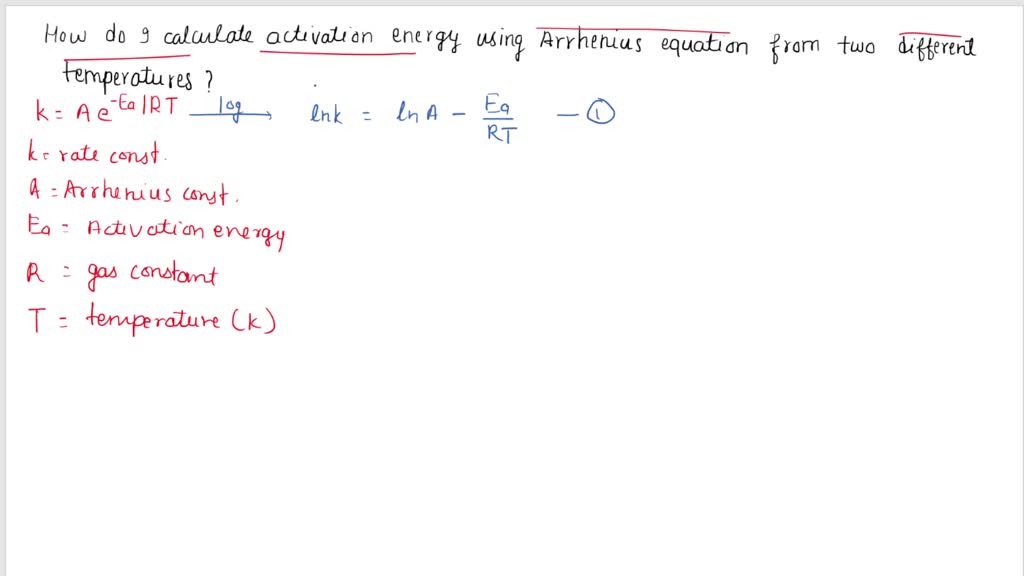 How do I calculate activation energy using Arrhenius equation from two different
temperatures ?
k = A e^-Ea/RT log→ lnk = ln A - Ea/RT - ①
k = rate const.
A = Arrhenius const.
Ea = Activation energy
R = gas constant
T = temperature (k)